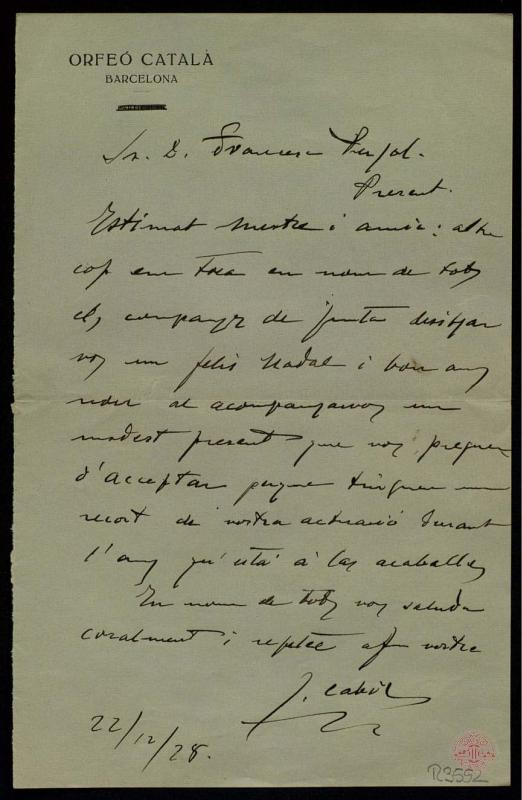 ORFEÓ CATALÀ
BARCELONA
Sr. D. Francesc Pujol.
Present.
Estimat Mestre i amic: altre
cop em toca en nom de tots
els companys de Junta desitjar
vos un felis Nadal i bon any
nou al acompanyarvos un
modest present que vos preguem
d'acceptar perque tingueu un
recort de vostra actuació durant
l'any qu'está à las acaballes
En nom de tots vos saluda
coralment i repetes afm vostre
J. Cabó
22/12/28.
R3552